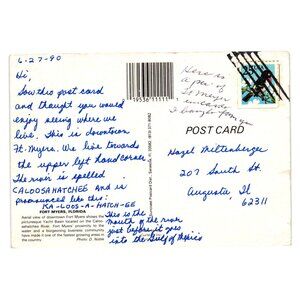 6-27-90
Hi,
Saw this post card
and thought you would
enjoy seeing where we
live. This is downtown
Ft. Myers. We live towards
the upper left hand corner.
The river is spelled
CALOOSAHATCHEE and is
pronounced like this:
KA-LOOS-A-HATCH-EE
FORT MYERS, FLORIDA
Aerial view of downtown Fort Myers shows the
picturesque Yacht Basin located on the Caloo-
sahatchee River. Fort Myers' proximity to the
water and a burgeoning business community
have made it one of the fastest growing areas in
the country.
Photo: D. Noble
This is the
mouth of the river
just before it goes
into the Gulf of Mexico
Here is
a pen
Ft Myers
POST CARD
Hazel Meltenberger
207 South St.
Augusta Il
62311